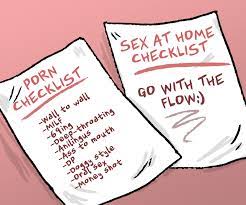 PORN
CHECKLIST
-Wall to wall
-MILF
-69ing
-Deep-throating
-Anilingus
-Ass to mouth
-DP
-Doggy style
-Oral sex
-Money shot
SEX AT HOME
CHECKLIST
GO WITH THE
FLOW;)